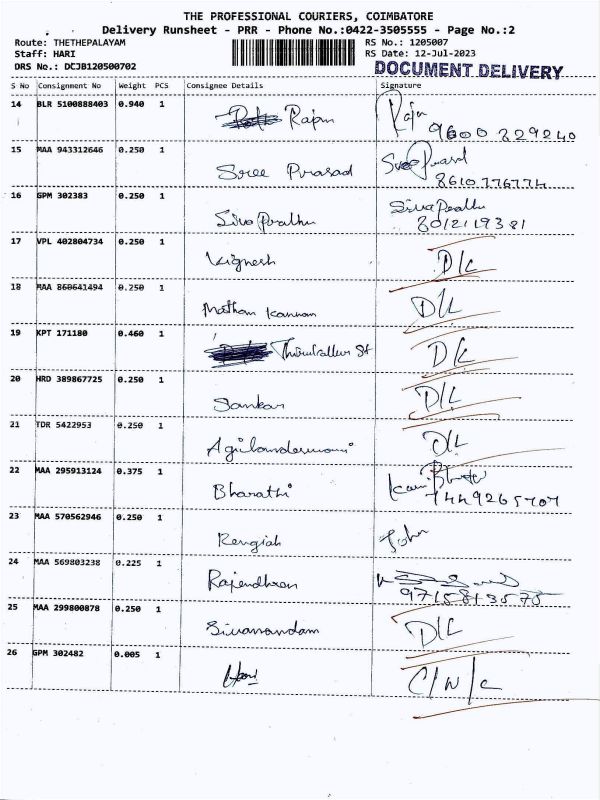 THE PROFESSIONAL COURIERS, COIMBATORE
Delivery Runsheet - PRR - Phone No.:0422-3505555 - Page No.:2
Route: THETHEPALAYAM RS No.: 1205007
Staff: HARI RS Date: 12-Jul-2023
DRS No.: DCJB120500702 DOCUMENT DELIVERY
S No Consignment No Weight PCS Consignee Details Signature
14 BLR 5100888403 0.940 1 Rajan Raja
9600 829240
15 MAA 943312646 0.250 1 Sree Prasad Sree Prasad
8610776774
16 GPM 302383 0.250 1 Siva Prathu Siva Prathu
8012119381
17 VPL 402804734 0.250 1 Vignesh D/L
18 MAA 860641494 0.250 1 Mathan Kannan D/L
19 KPT 171180 0.460 1 St D/L
20 HRD 389867725 0.250 1 Sankar D/L
21 TDR 5422953 0.250 1 D/L
22 MAA 295913124 0.375 1 Bharathi
7449265707
23 MAA 570562946 0.250 1 Rengiah John
24 MAA 569803238 0.225 1 Rajendhran
9715813575
25 MAA 299800878 0.250 1 Sivanandam D/L
26 GPM 302482 0.005 1 Hari C/N/C